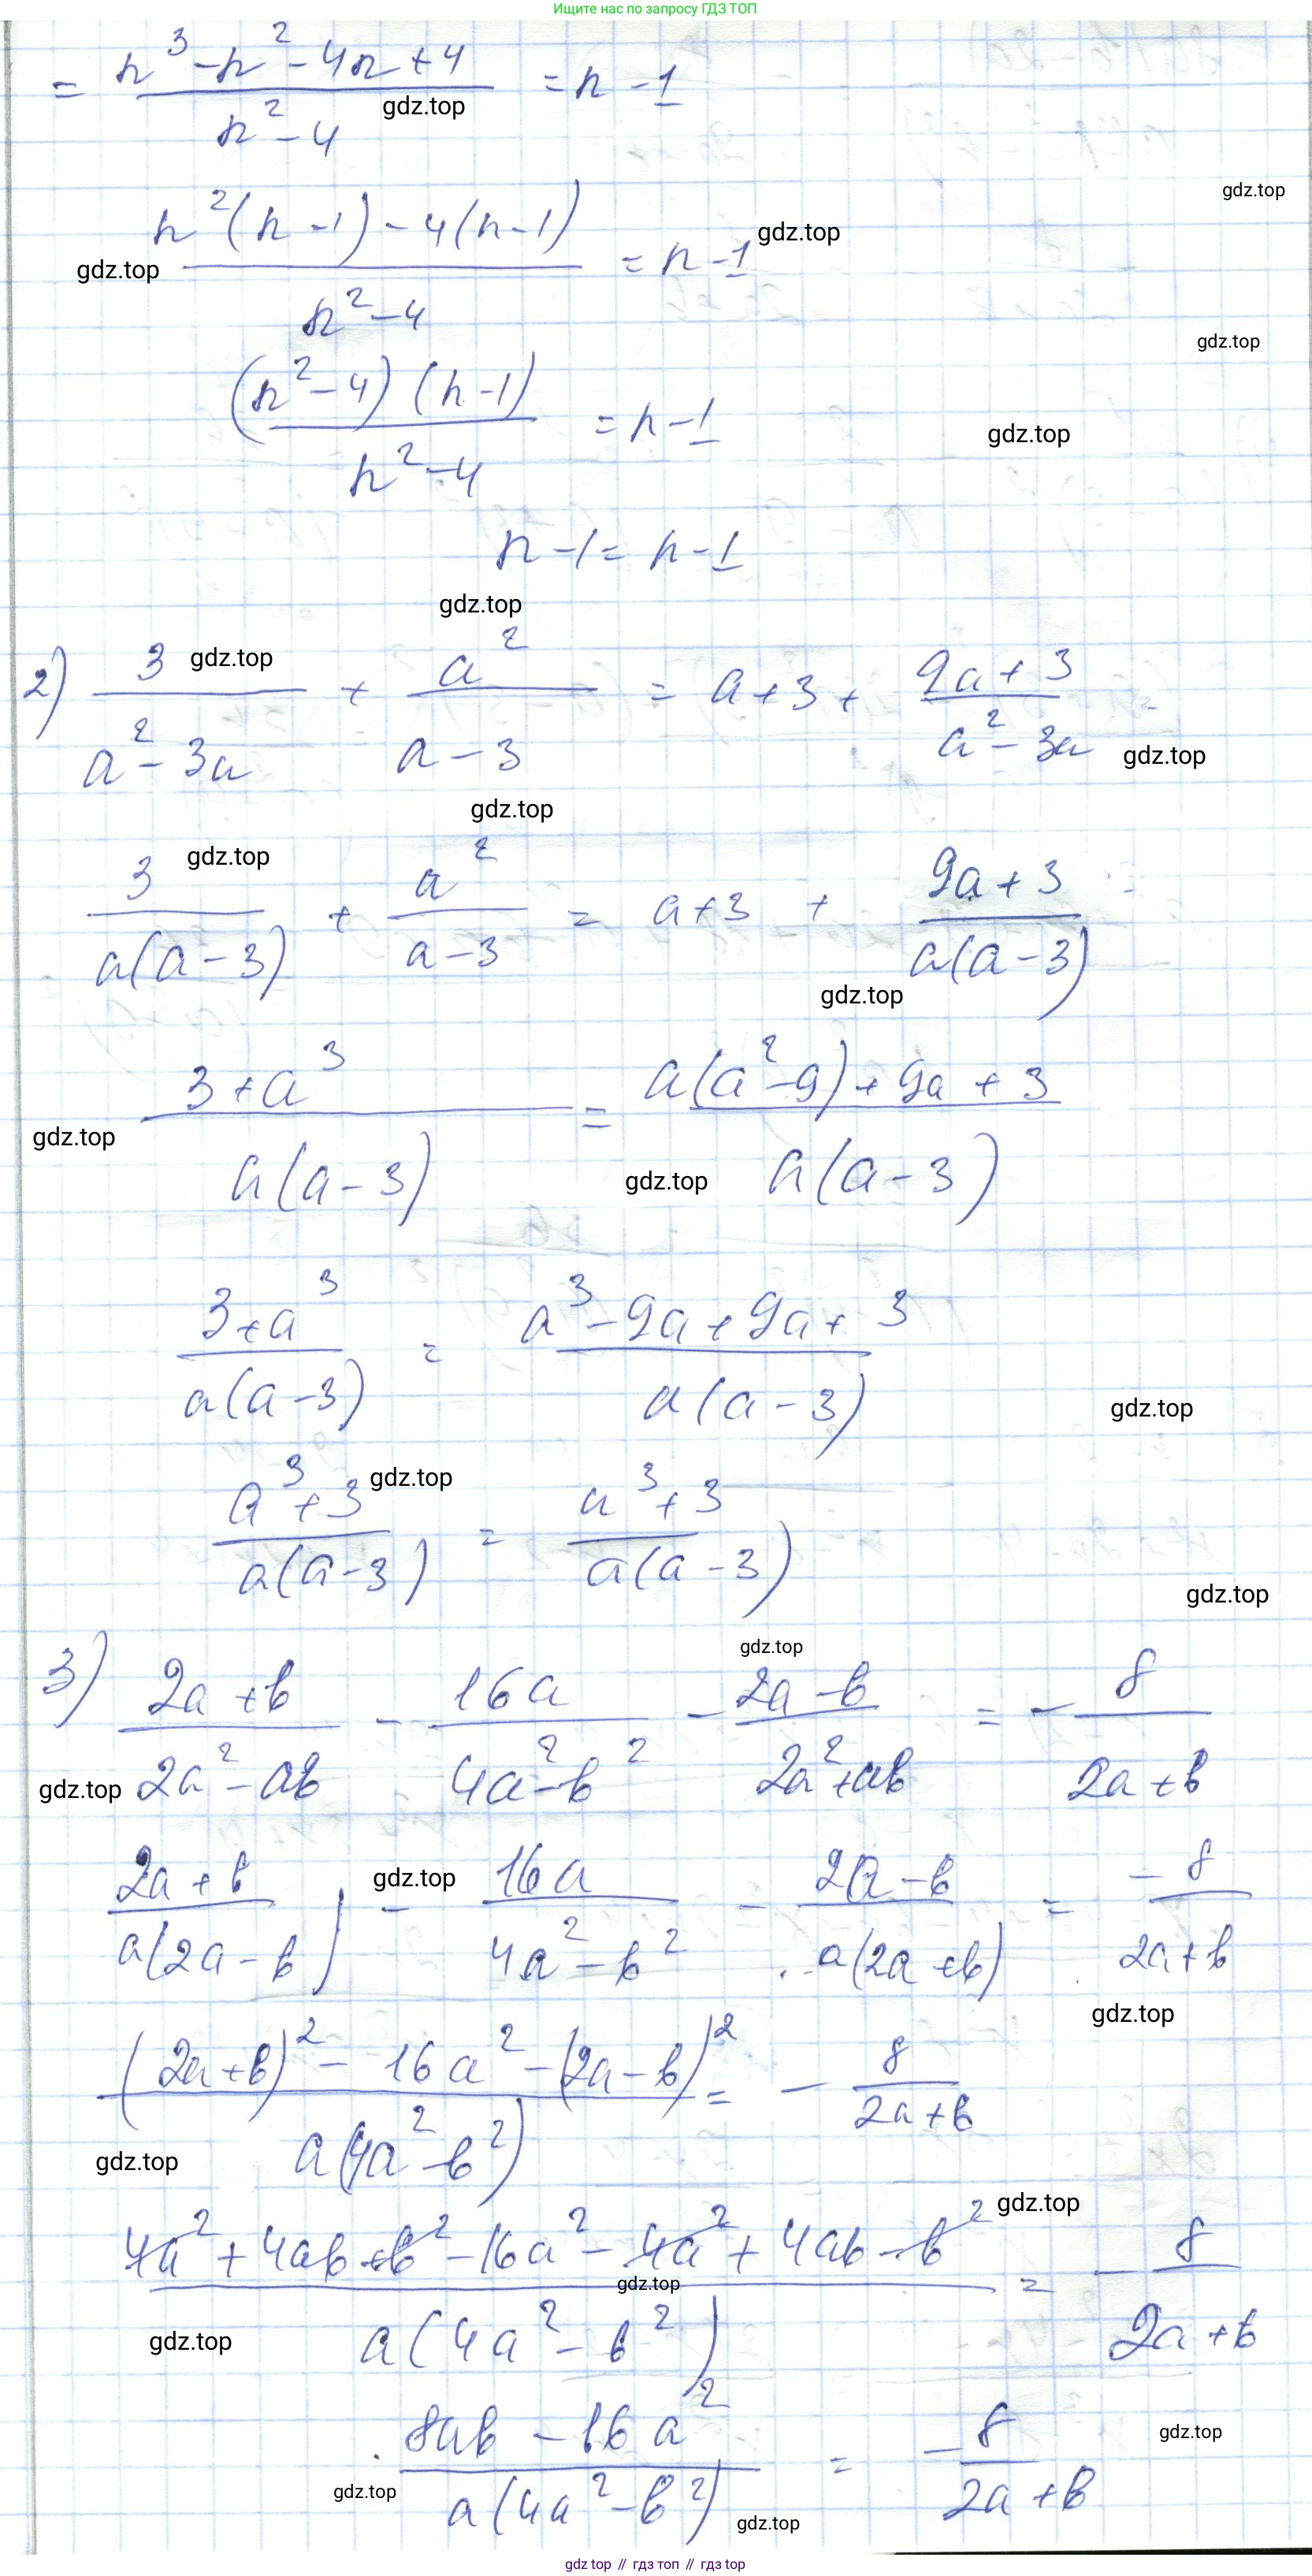 Ищите нас по запросу ГДЗ ТОП
= (n³ - n² - 4n + 4)/(n² - 4) = n - 1
gdz.top
gdz.top
(n²(n - 1) - 4(n - 1))/(n² - 4) = n - 1
gdz.top
gdz.top
gdz.top
((n² - 4)(n - 1))/(n² - 4) = n - 1
gdz.top
n - 1 = n - 1
gdz.top
2) 3/(a² - 3a) + a²/(a - 3) = a + 3 + (9a + 3)/(a² - 3a) =
gdz.top
gdz.top
gdz.top
3/(a(a - 3)) + a²/(a - 3) = a + 3 + (9a + 3)/(a(a - 3))
gdz.top
gdz.top
(3 + a³)/(a(a - 3)) = (a(a² - 9) + 9a + 3)/(a(a - 3))
gdz.top
gdz.top
(3 + a³)/(a(a - 3)) = (a³ - 9a + 9a + 3)/(a(a - 3))
gdz.top
(a³ + 3)/(a(a - 3)) = (a³ + 3)/(a(a - 3))
gdz.top
gdz.top
3) (2a + b)/(2a² - ab) - 16a/(4a² - b²) - (2a - b)/(2a² + ab) = - 8/(2a + b)
gdz.top
gdz.top
(2a + b)/(a(2a - b)) - 16a/(4a² - b²) - (2a - b)/(a(2a + b)) = - 8/(2a + b)
gdz.top
gdz.top
((2a + b)² - 16a² - (2a - b)²)/(a(4a² - b²)) = - 8/(2a + b)
gdz.top
(4a² + 4ab + b² - 16a² - 4a² + 4ab - b²)/(a(4a² - b²)) = - 8/(2a + b)
gdz.top
gdz.top
gdz.top
(8ab - 16a²)/(a(4a² - b²)) = - 8/(2a + b)
gdz.top
gdz.top
gdz.top
gdz top // гдз топ // gdz.top